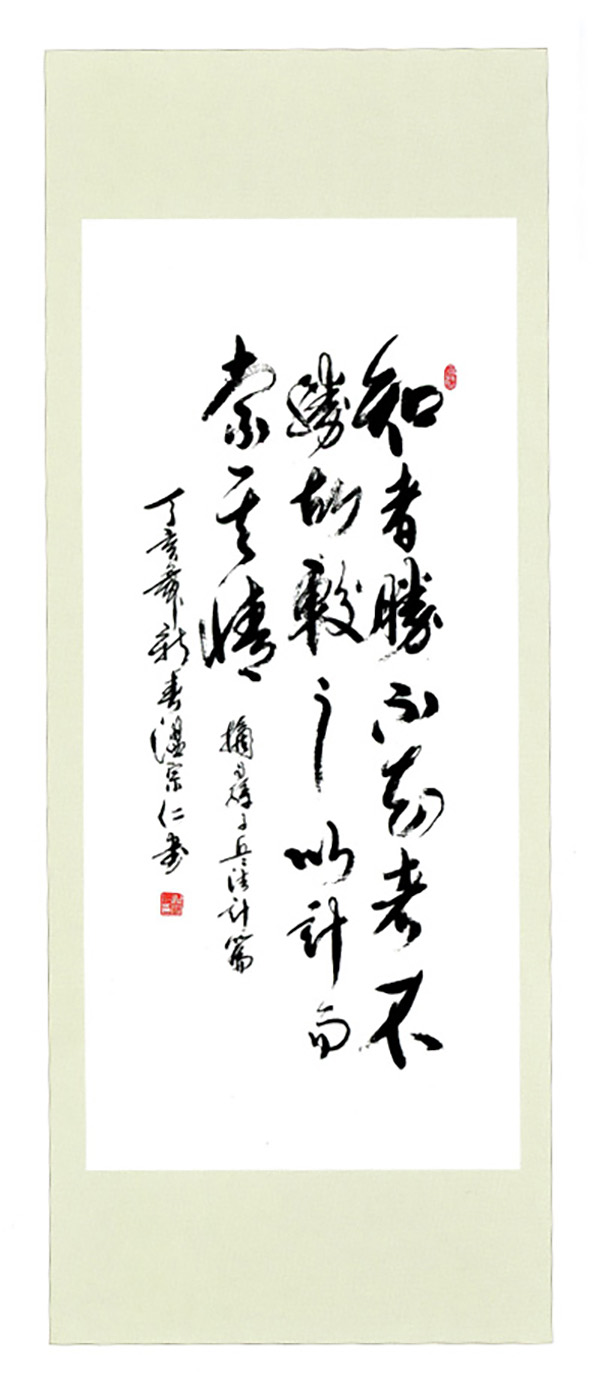 知者勝不知者不
勝故較之以計而
索其情
摘自孫子兵法計篇
丁亥年新春溫宗仁書